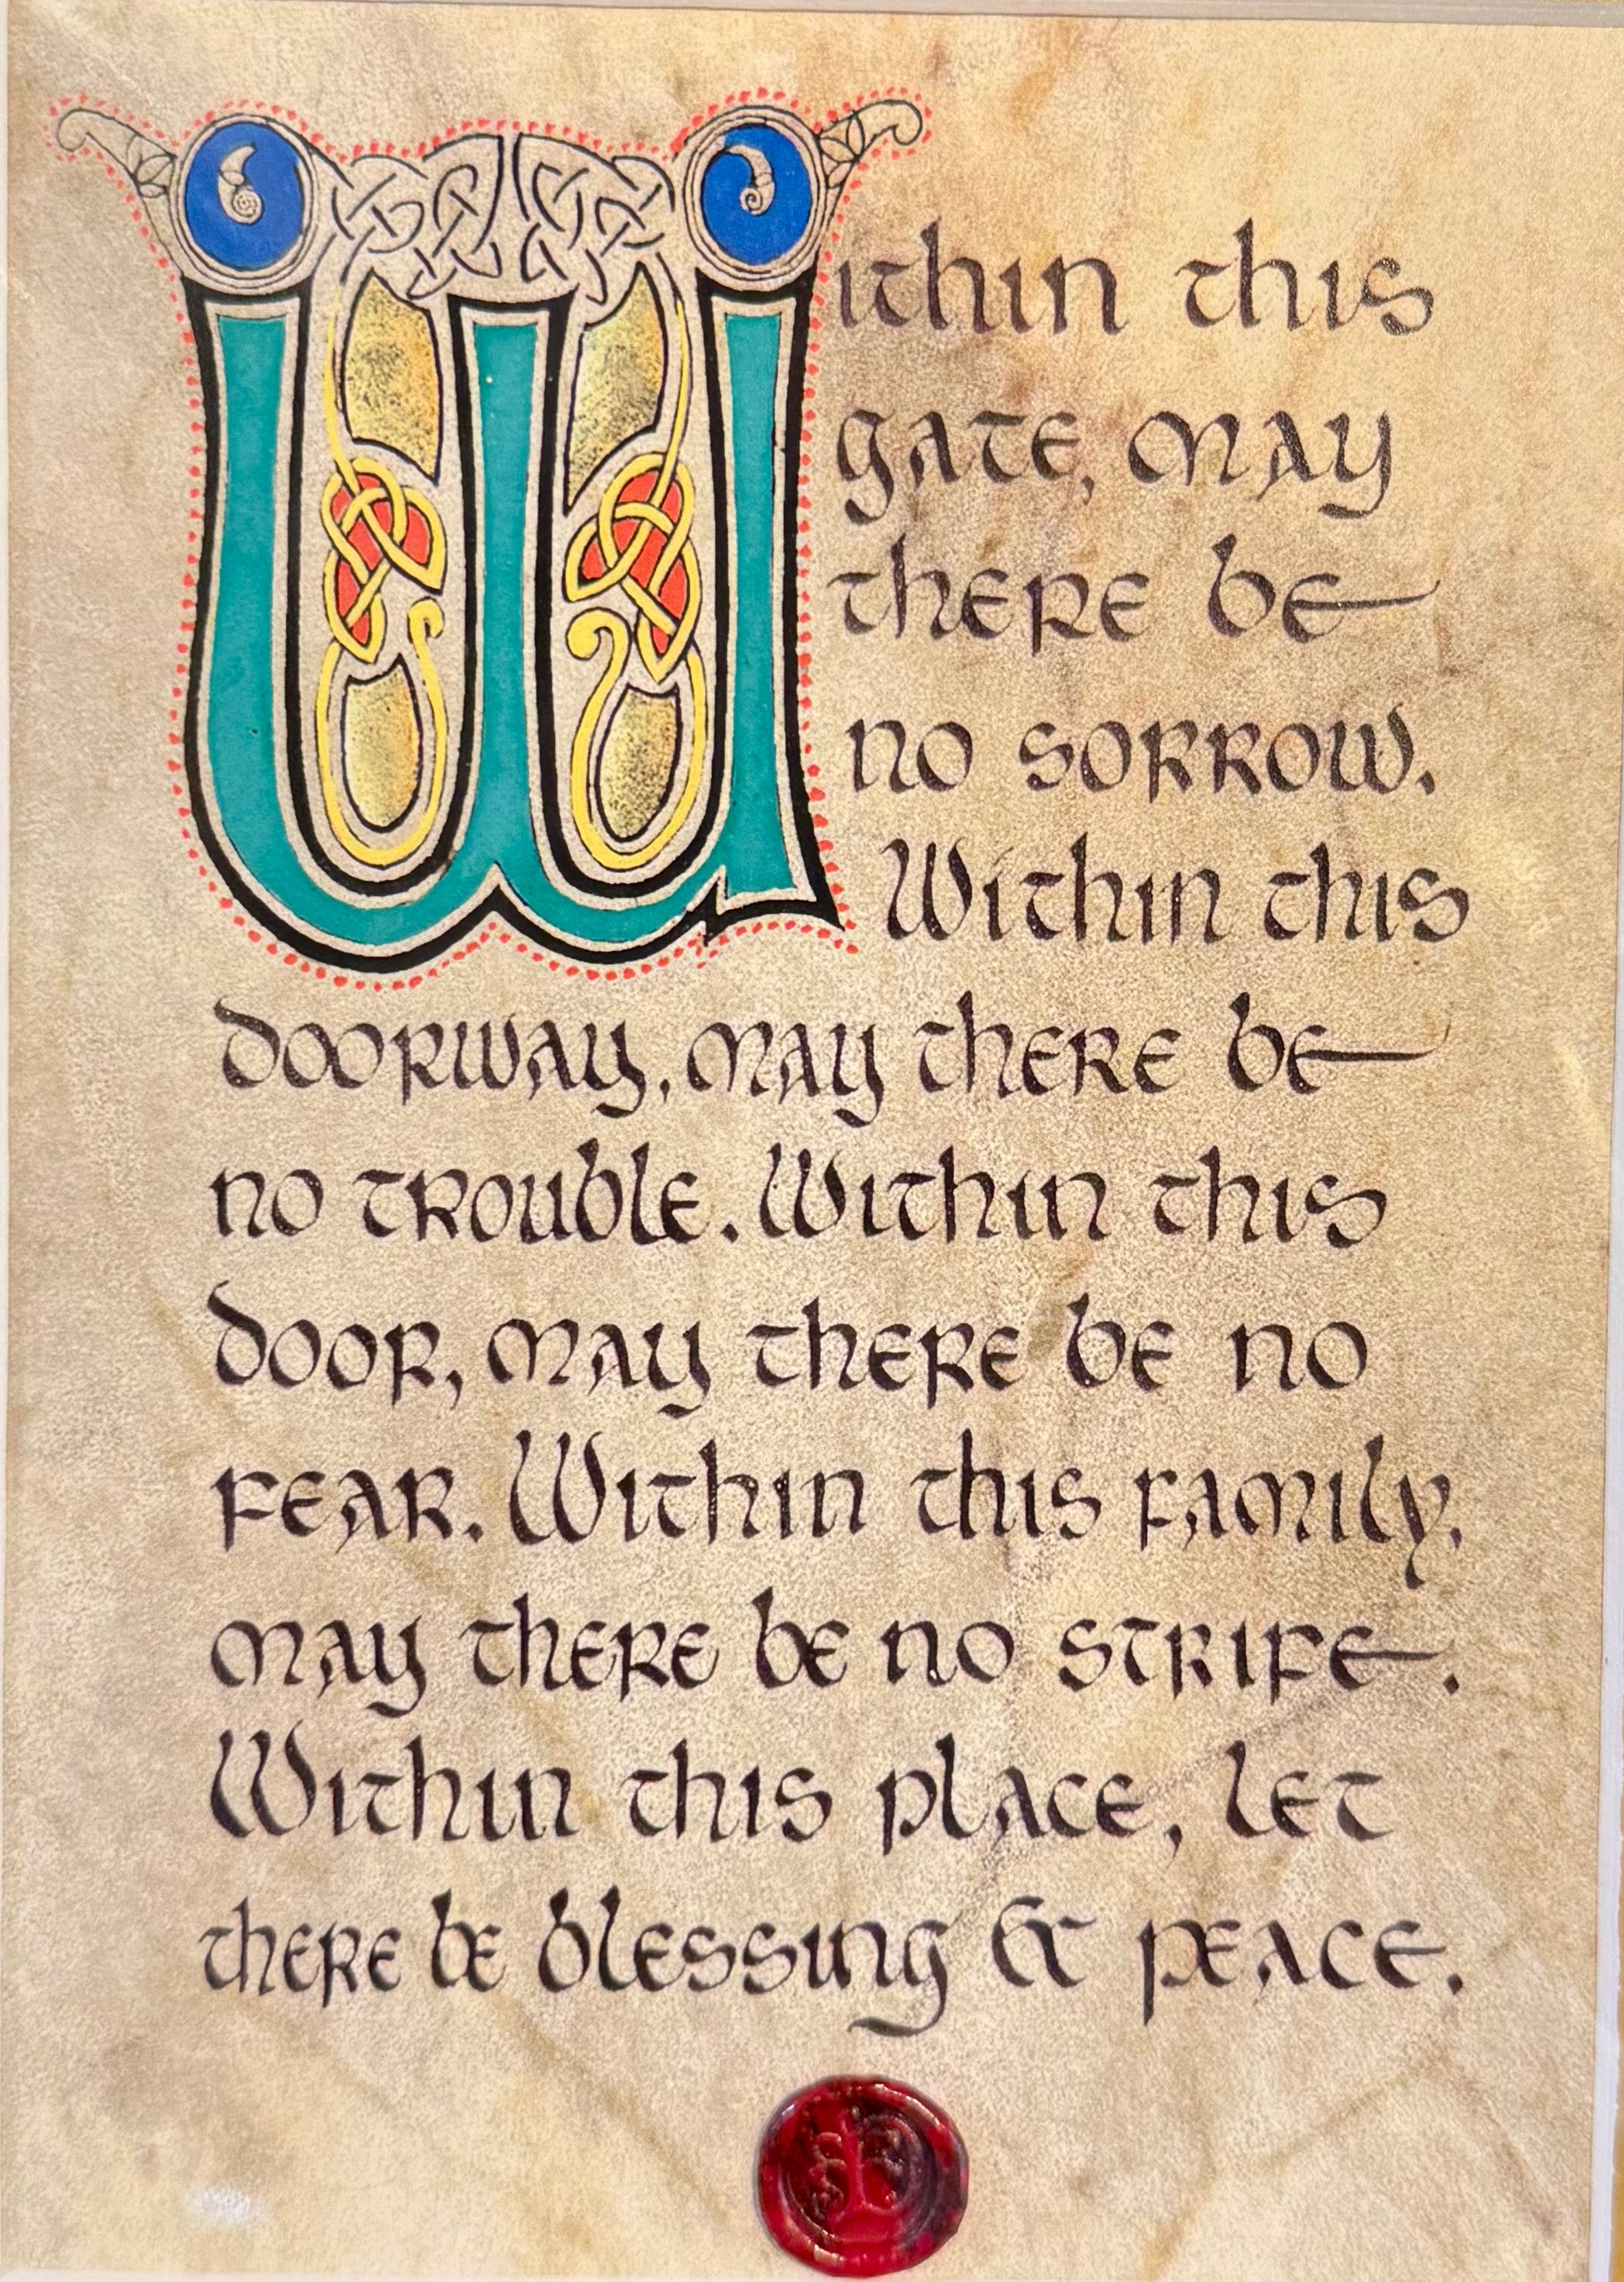 Within this
gate, may
there be
no sorrow.
Within this
doorway, may there be
no trouble. Within this
door, may there be no
fear. Within this family,
may there be no strife.
Within this place, let
there be blessing & peace.